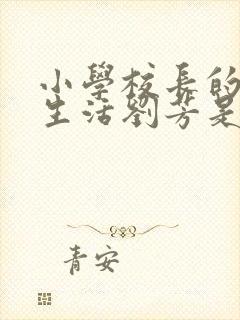 小學校長的
生活劉芳是
青安